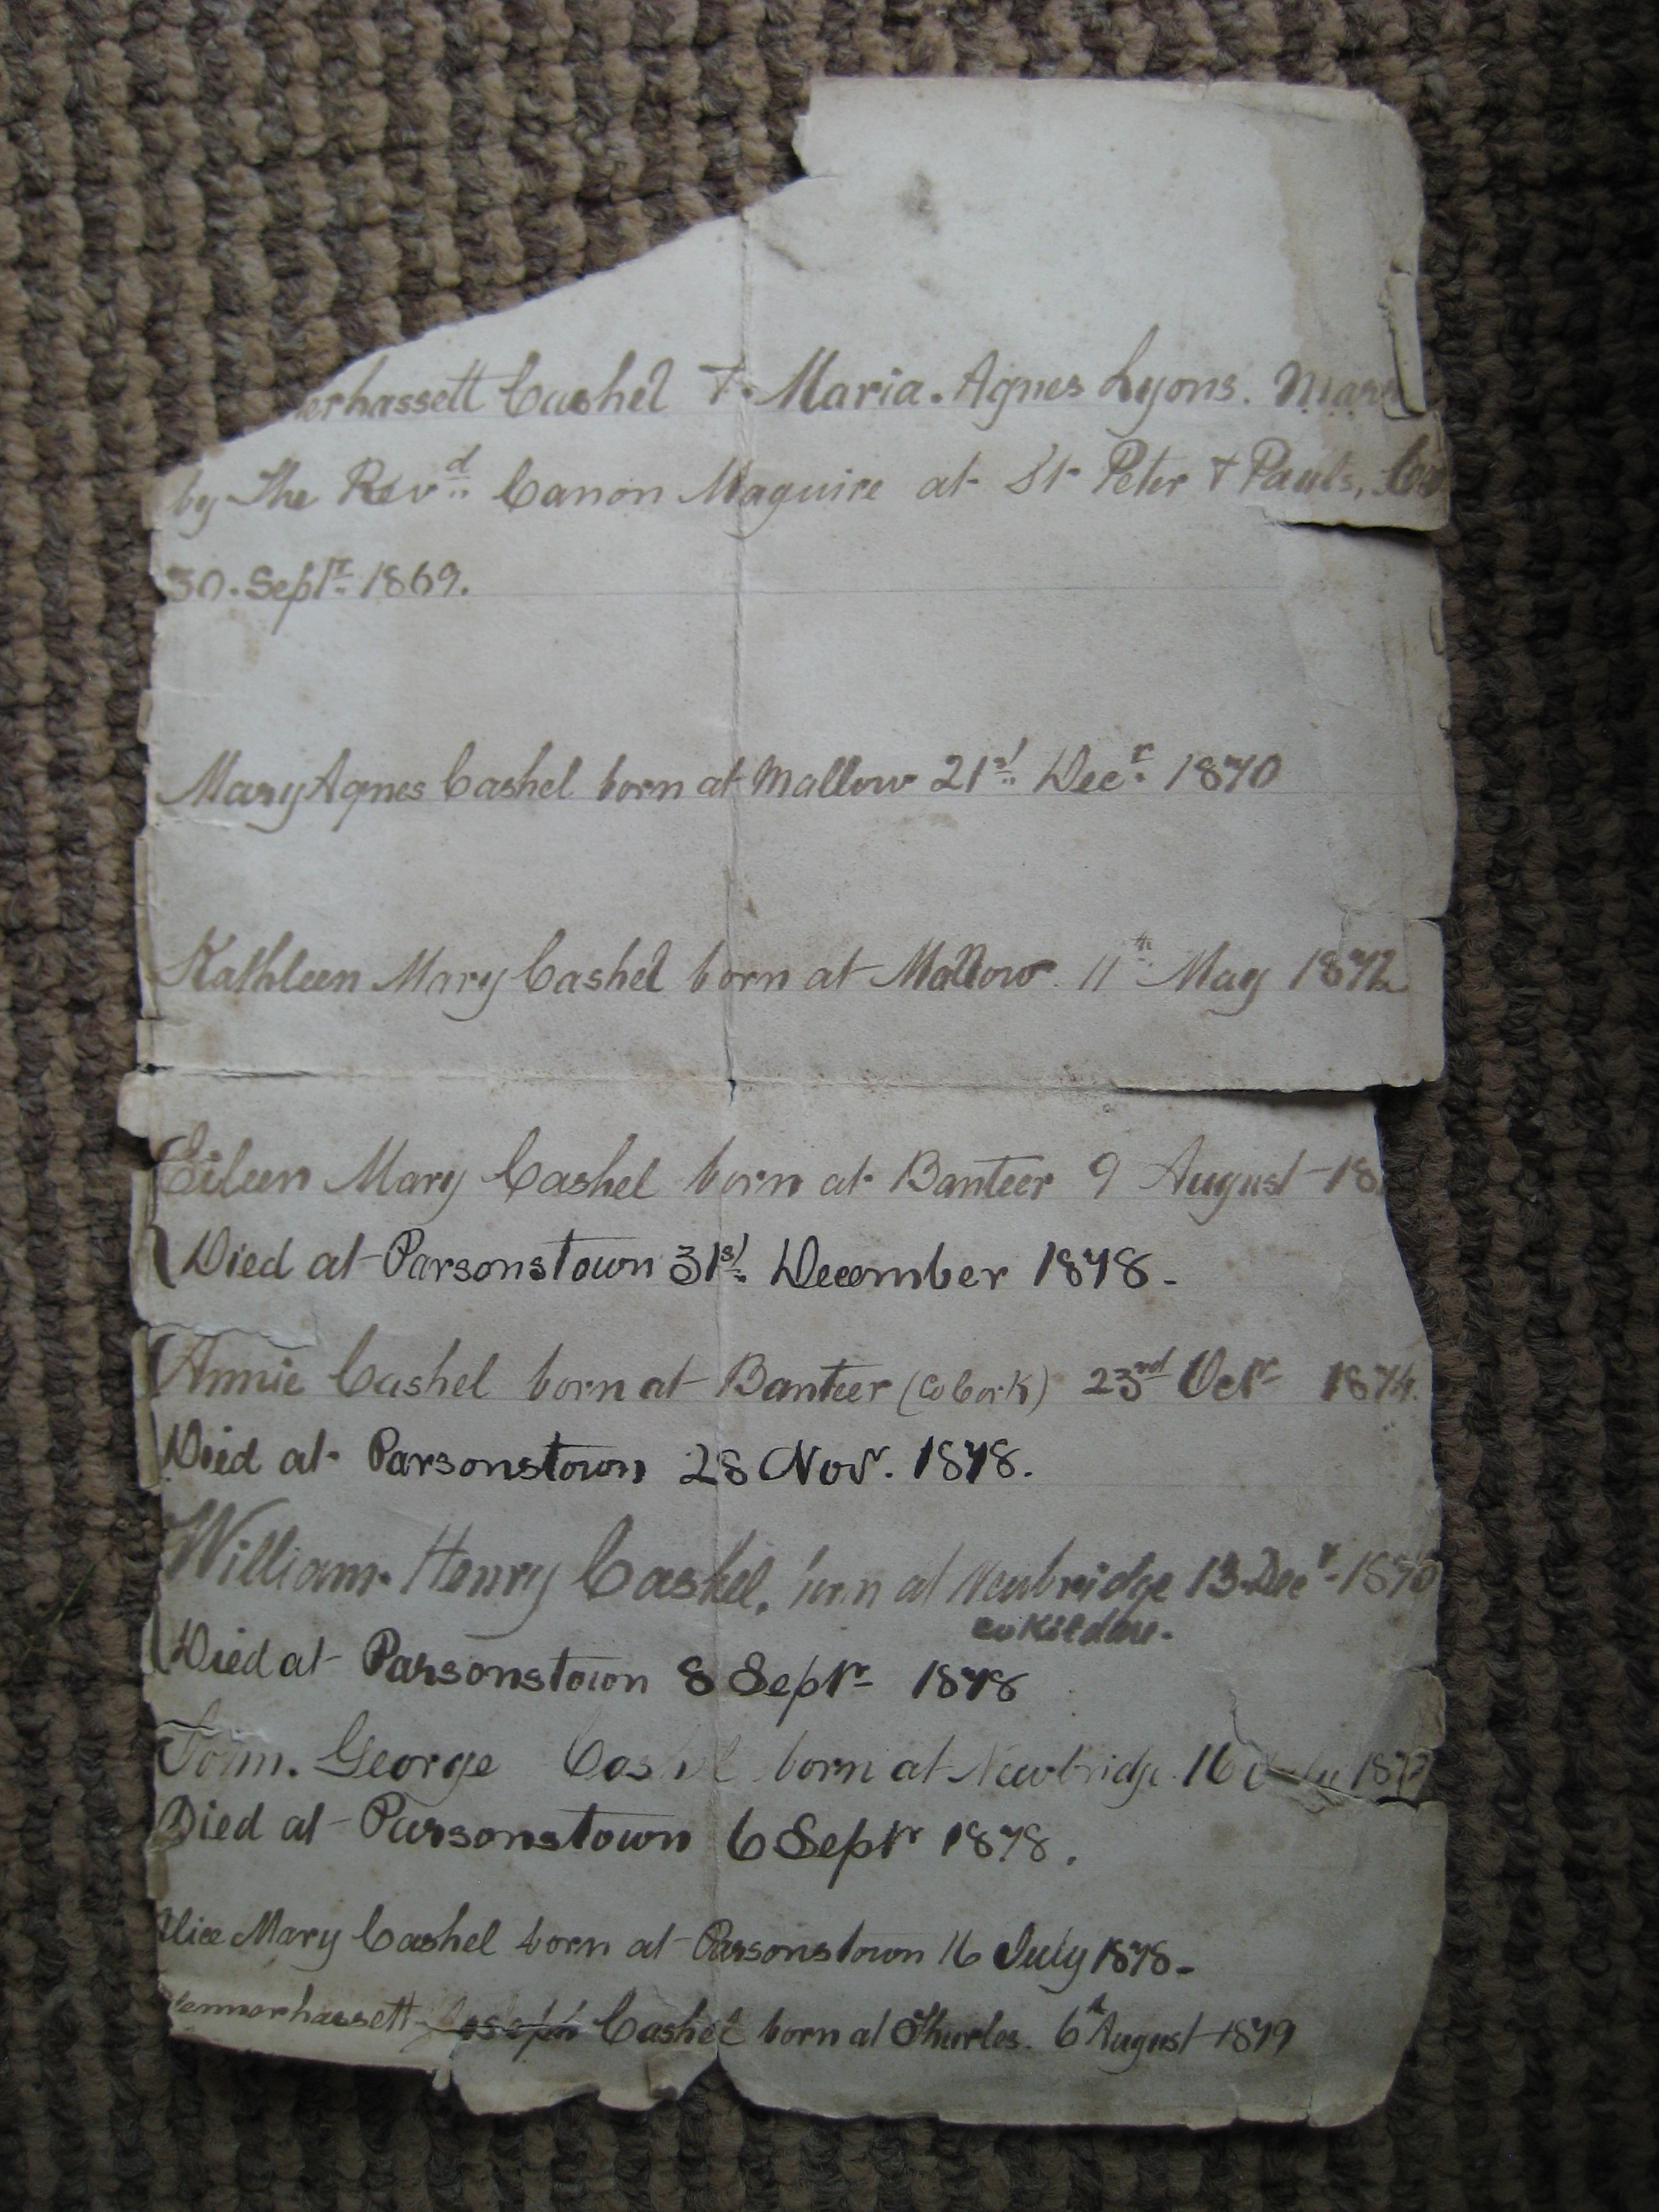 erhassett Cashel & Maria. Agnes Lyons. Marr
by The Revd. Canon Maguire at St Peter & Pauls, Co
30. Septr. 1869.
Mary Agnes Cashel born at Mallow 21st. Decr. 1870
Kathleen Mary Cashel born at Mallow. 11th May 1872
Eileen Mary Cashel born at Banteer 9 August 18
Died at Parsonstown 31st. December 1878.
Annie Cashel born at Banteer (Co Cork) 23rd Octr 1874.
Died at Parsonstown 28 Novr. 1878.
William. Henry Cashel, born at Newbridge 13 Decr. 187
Co Kildare.
Died at Parsonstown 8 Septr 1878
John. George Cashel born at Newbridge. 16 187
Died at Parsonstown 6 Septr 1878.
Alice Mary Cashel born at Parsonstown 16 July 1878-
lennerhassett Joseph Cashel born at Thurles. 6th August 1879